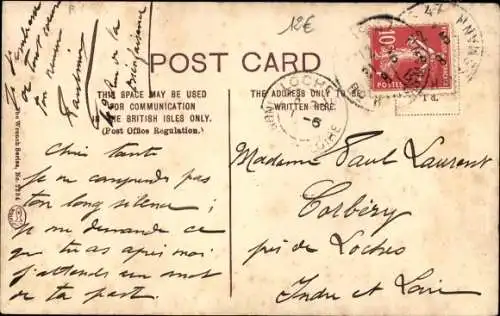 12€
POST CARD
THIS SPACE MAY BE USED
FOR COMMUNICATION
IN THE BRITISH ISLES ONLY.
(Post Office Regulation.)
THE ADDRESS ONLY TO BE
WRITTEN HERE.
The Wrench Series, No.
10
POSTES
1d.
LOCHES
Je
tout mon
la
Chère tante
Je ne comprends pas
ton long silence ;
Je me demande ce
que tu as après moi
J'attends un mot
de ta part.
Madame Paul Laurent
Corbéry
près de Loches
Indre et Loire